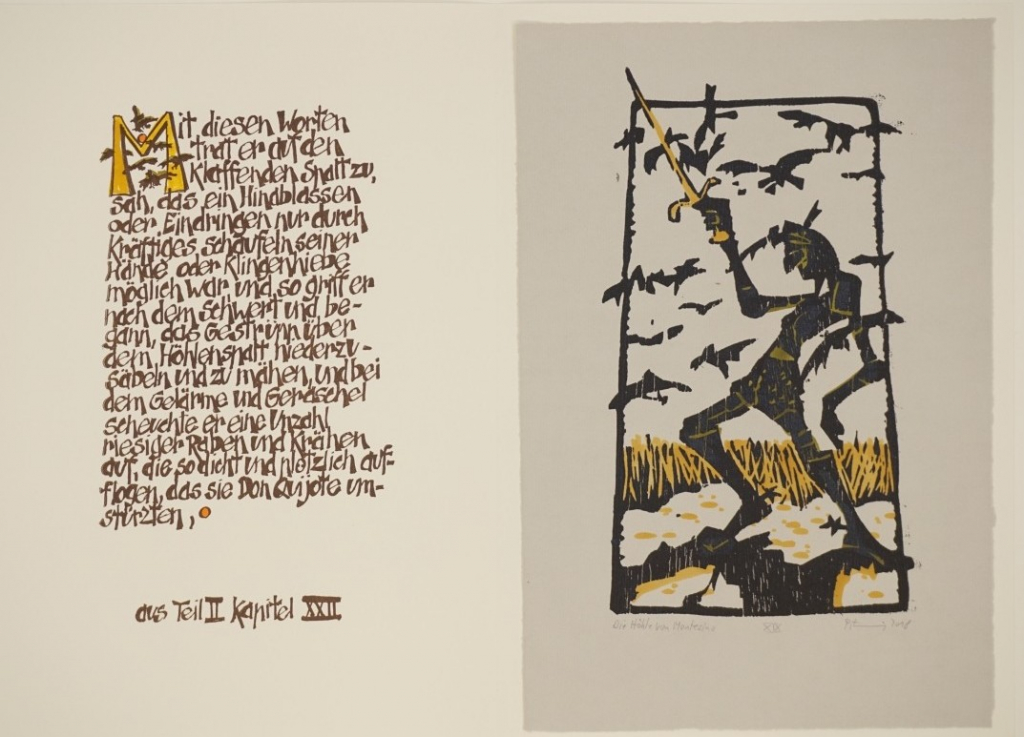 Mit diesen Worten
trat er auf den
klaffenden Spalt zu,
sah, das ein Hinablassen
oder Eindringen nur durch
kräftiges schaufeln seiner
Hände oder Klingenhiebe
möglich war und so griff er
nach dem Schwert und be-
gann, das Gestrüpp über
dem Höhlenspalt niederzu-
säbeln und zu mähen, und bei
dem Gelärme und Geraschel
scheuchte er eine Unzahl
riesiger Raben und Krähen
auf, die so dicht und plötzlich auf-
flogen, das sie Don Quijote um-
stürzten,
aus Teil II Kapitel XXII
Die Höhle von Montesino